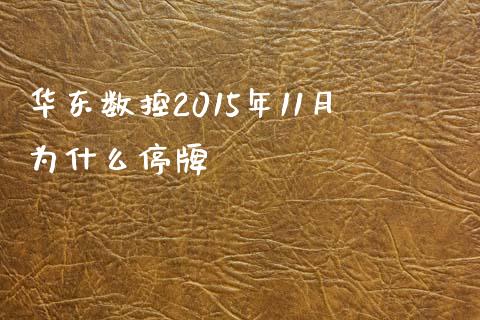 华东数控2015年11月
为什么停牌